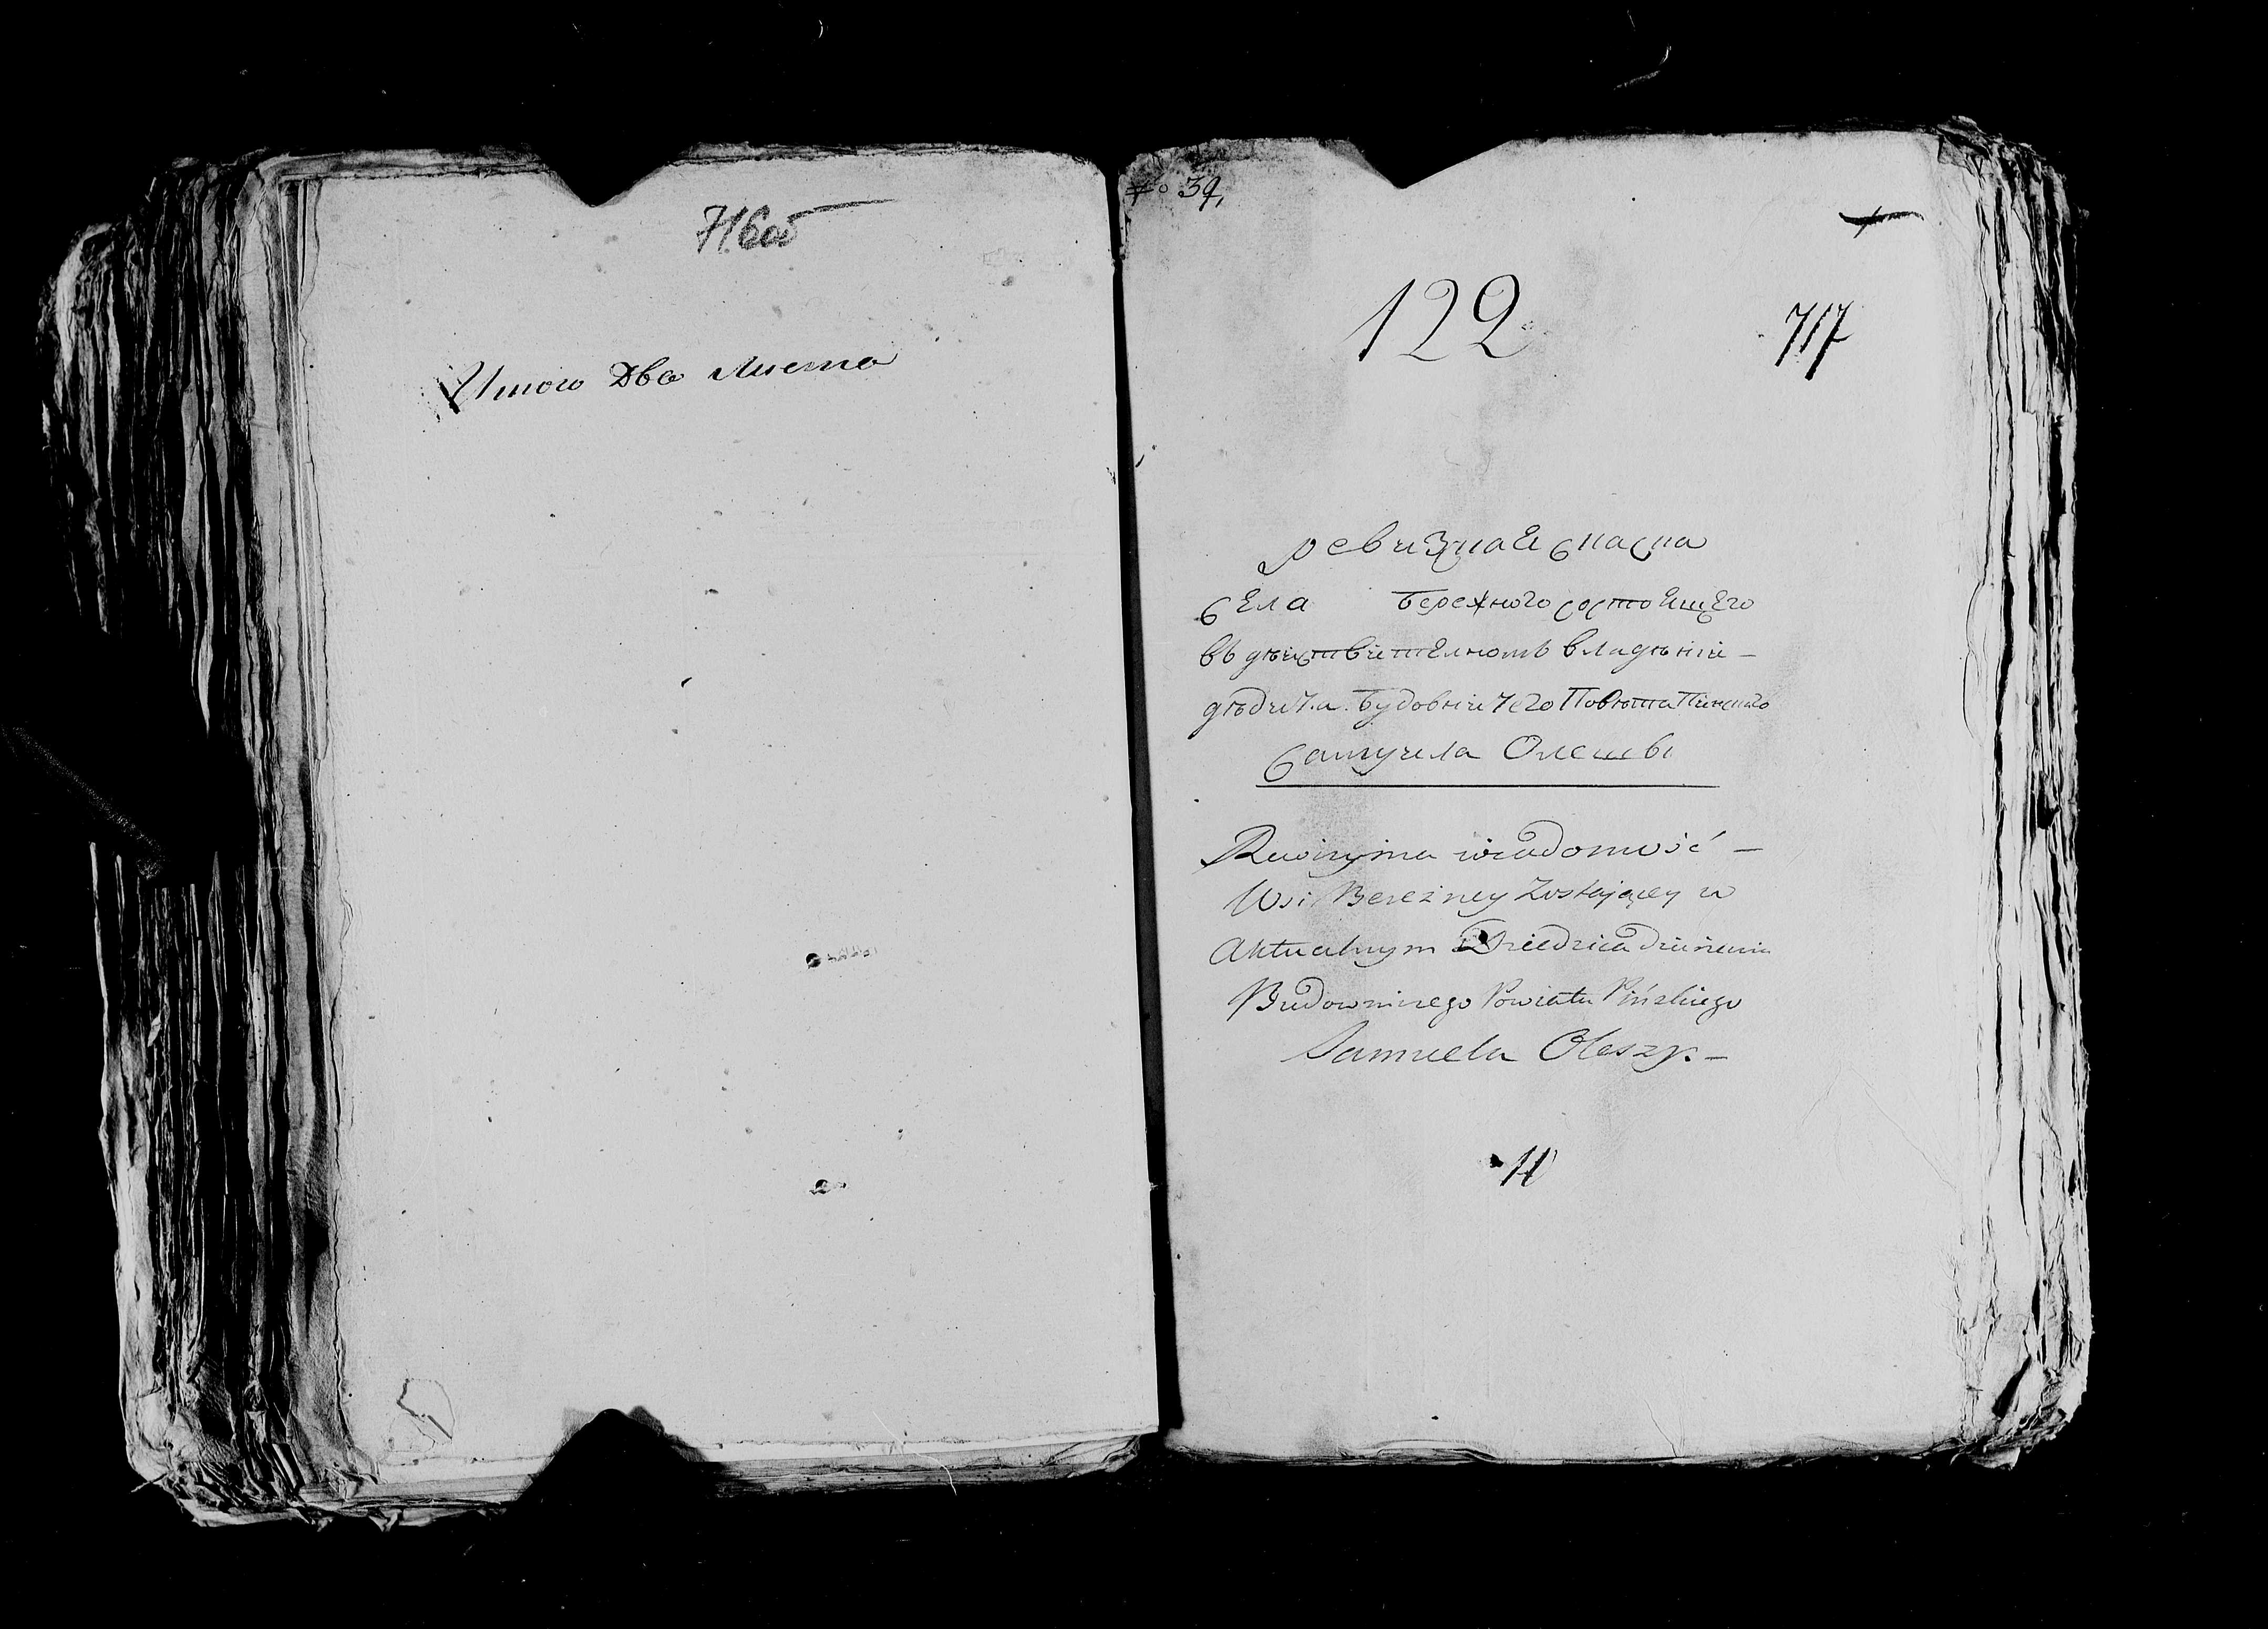 716об
Итого два листа
39,
122
717
ревизная скаска
села Бережного состоящего
въ дѣиствителномъ владѣнiи –
дѣдича Будовничего Повѣта Пинского
Самуила Олешы
Rewizyina wiadomość –
Wsi Bereżney Zostaiącey w
Aktualnym Dziedzica dzierżeniu
Budowniczego Powiatu Pińskiego
Samuela Oleszy. –